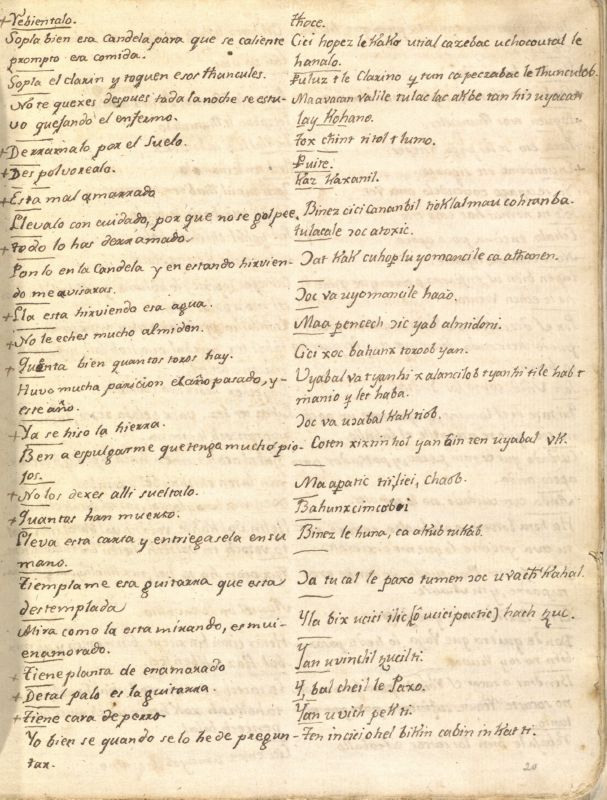 + Yebientalo.
Sopla bien esa Candela para que se caliente
prompto esa comida.
Sopla el clarin y toquen esos thuncules.
No te quexes despues toda la noche se estu-
vo quejando el enfermo.
+ Derramalo por el suelo.
+ Despolvorealo.
+ Esta mal amarrado
Llevalo con cuidado, por que no se golpee.
+ todo lo has derramado.
Ponlo en la Candela y en estando hirvien-
do me avisaras.
+ Lla esta hirviendo esa agua.
+ No le eches mucho almiden.
+ Quenta bien quantos toros hay.
Huvo mucha paricion el año pasado, y-
este año.
+ Ya se hiso la hierra.
Ben a espulgarme que tengo mucho pio-
jos.
+ No los dexes alli sueltalo.
+ Quantos han muerto.
Lleva esta carta y entriegasela en su
mano.
Tiemplame esa guitarra que esta
destemplada
Mira como la esta mirando, es mui-
enamorado.
+ Tiene planta de enamorado
+ De tal palo es la guitarra.
+ Tiene cara de perro.
Yo bien se quando se lo he de pregun-
tar.
thoce.
Cici hopez le kako utial cazebac uchocoutal le
hanalo.
Puluz t le Clarino y tun ca peczabac le thunculob.
Maavacan valile tulac lac akbe tan his uyacan
lay kohano.
tox chint ti tol t lumo.
Puite.
kaz kaxanil.
Binez cici Cananbil tioklal mau cohtanba.
tulacale ɔoc atoxic.
Ɔat kak cuhoplu yomancile ca athanen.
Ɔoc va uyomancile haao.
Maa pencech ɔic yab almidoni.
Cici xoc bahunx toroob yan.
Uyabal va tyanhi x alancilob tyanhi ti le hab t
manio y ler haba.
Ɔoc va uzabal kak tiob.
Coten xixtin hol yan bin ten uyabal uk.
Maapatic tiifiei, Chaob.
Bahunx cimcobi
Binez le huna, ca akub tukab.
Ɔa tu cal le paxo tumen ɔoc uvach kahal.
Yla bix ucici ilic (ô ucici pactic) hach ɔuc.
Yan uvinchil ɔucil ti.
Y, bal cheil le Paxo.
Yan uvich pek ti.
Ten inciciohel bikin cabin inkat ti.
20